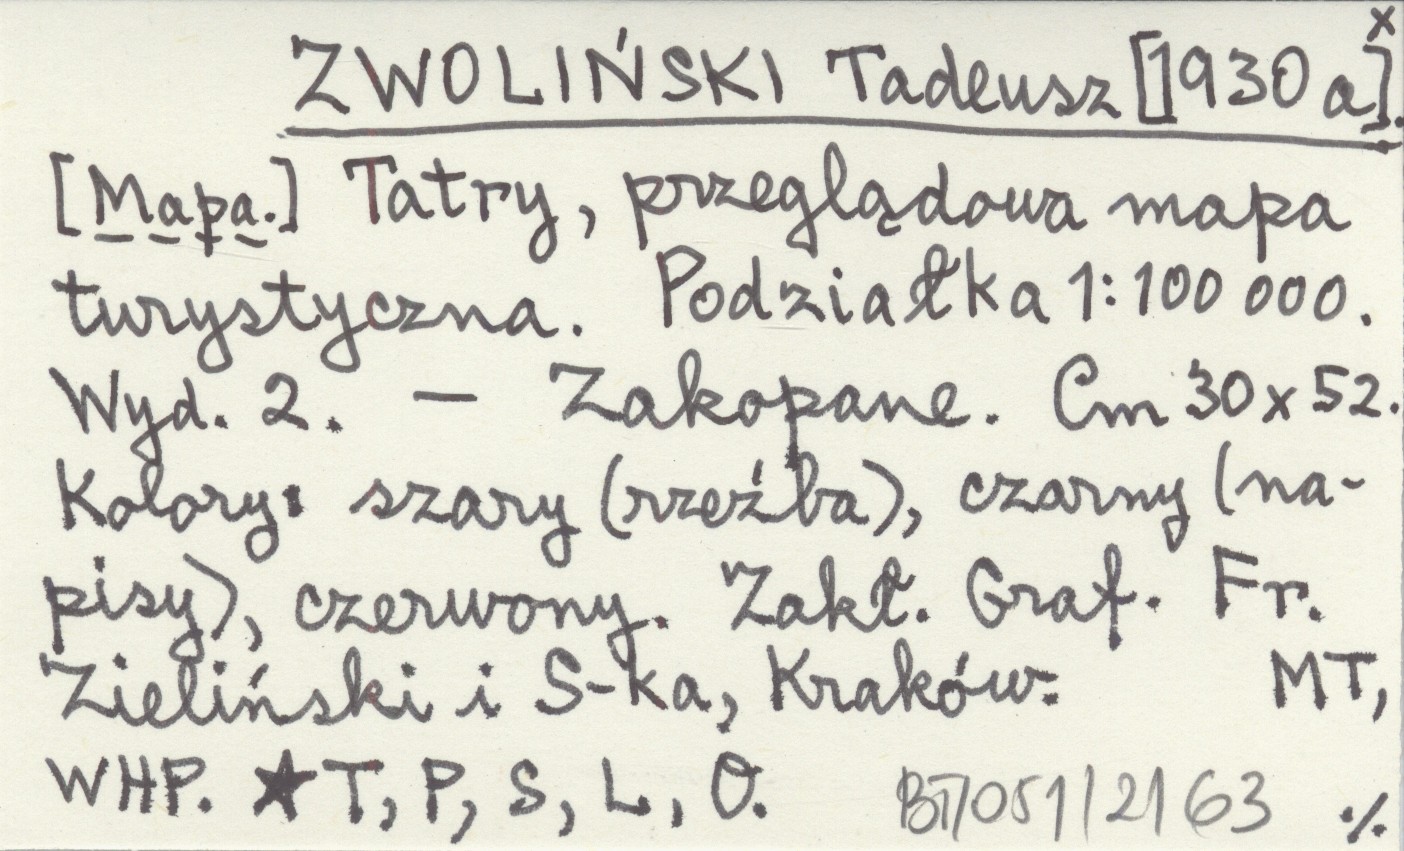 x
ZWOLIŃSKI Tadeusz [1930 a].
[Mapa.] Tatry, przeglądowa mapa
turystyczna. Podziałka 1:100 000.
Wyd. 2. — Zakopane. Cm 30 x 52.
Kolory: szary (rzeźba), czarny (na-
pisy), czerwony. Zakł. Graf. Fr.
Zieliński i S-ka, Kraków. MT,
WHP. ★ T, P, S, L, O. 051/2163 ·/.